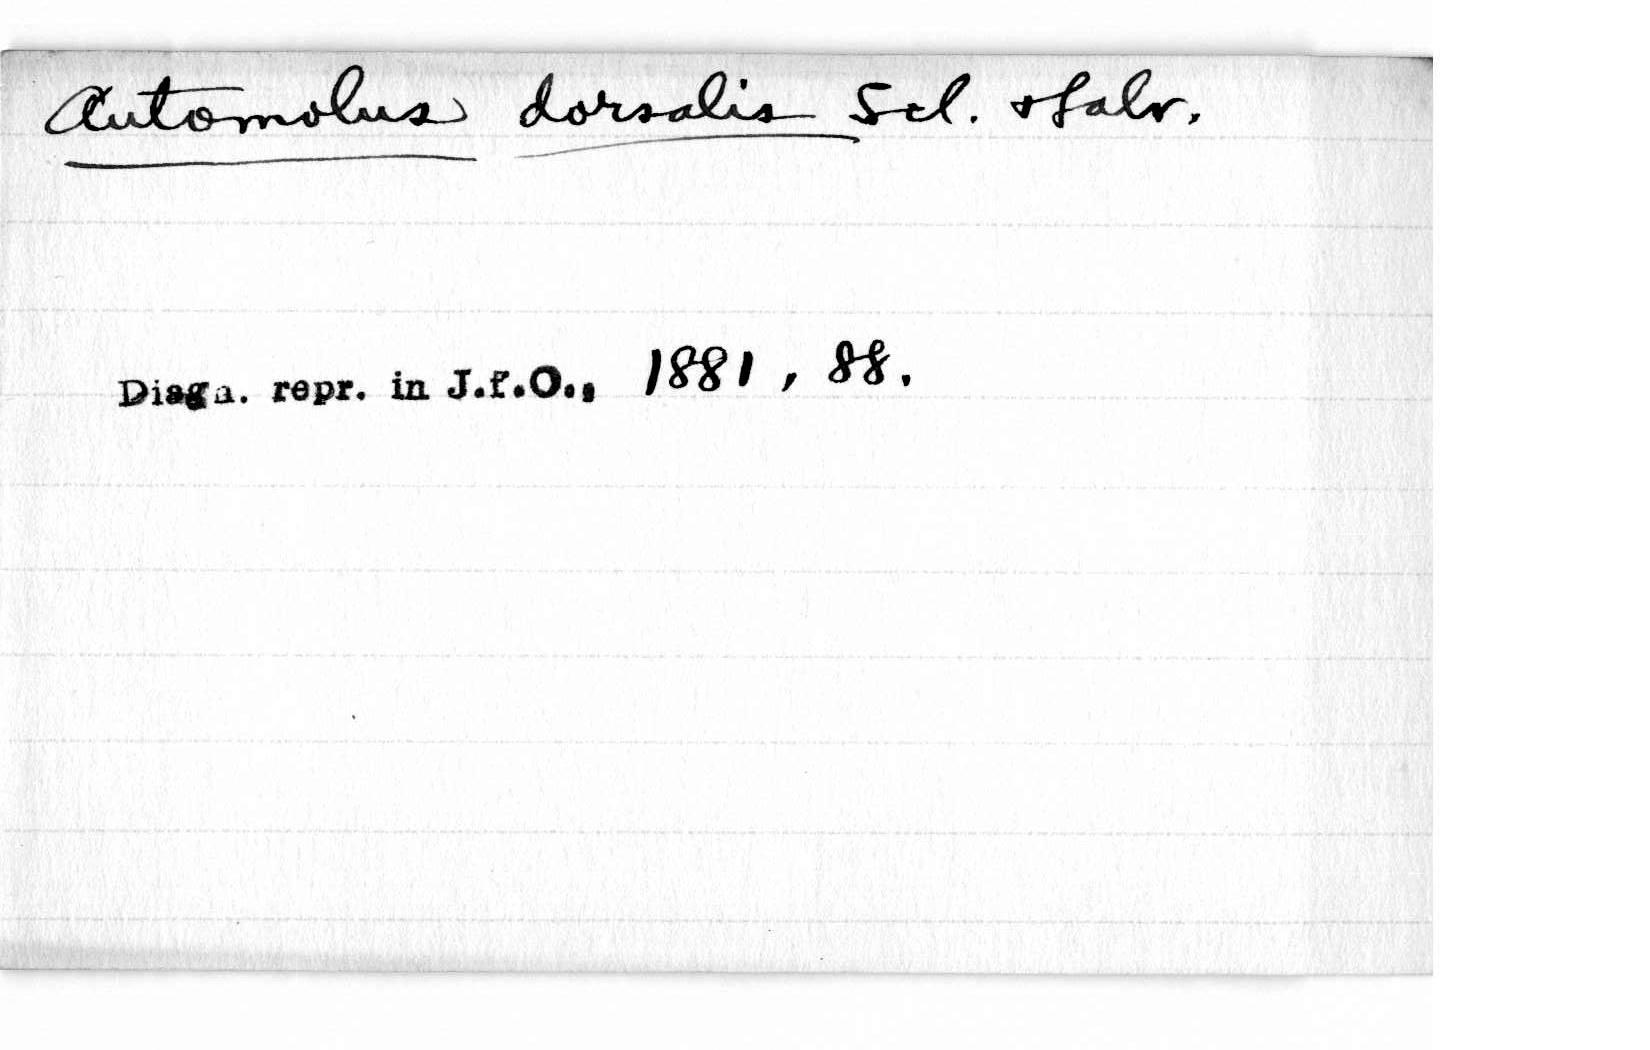 Automolus dorsalis Scl. & Salv.
Diagn. repr. in J.f.O., 1881, 88.